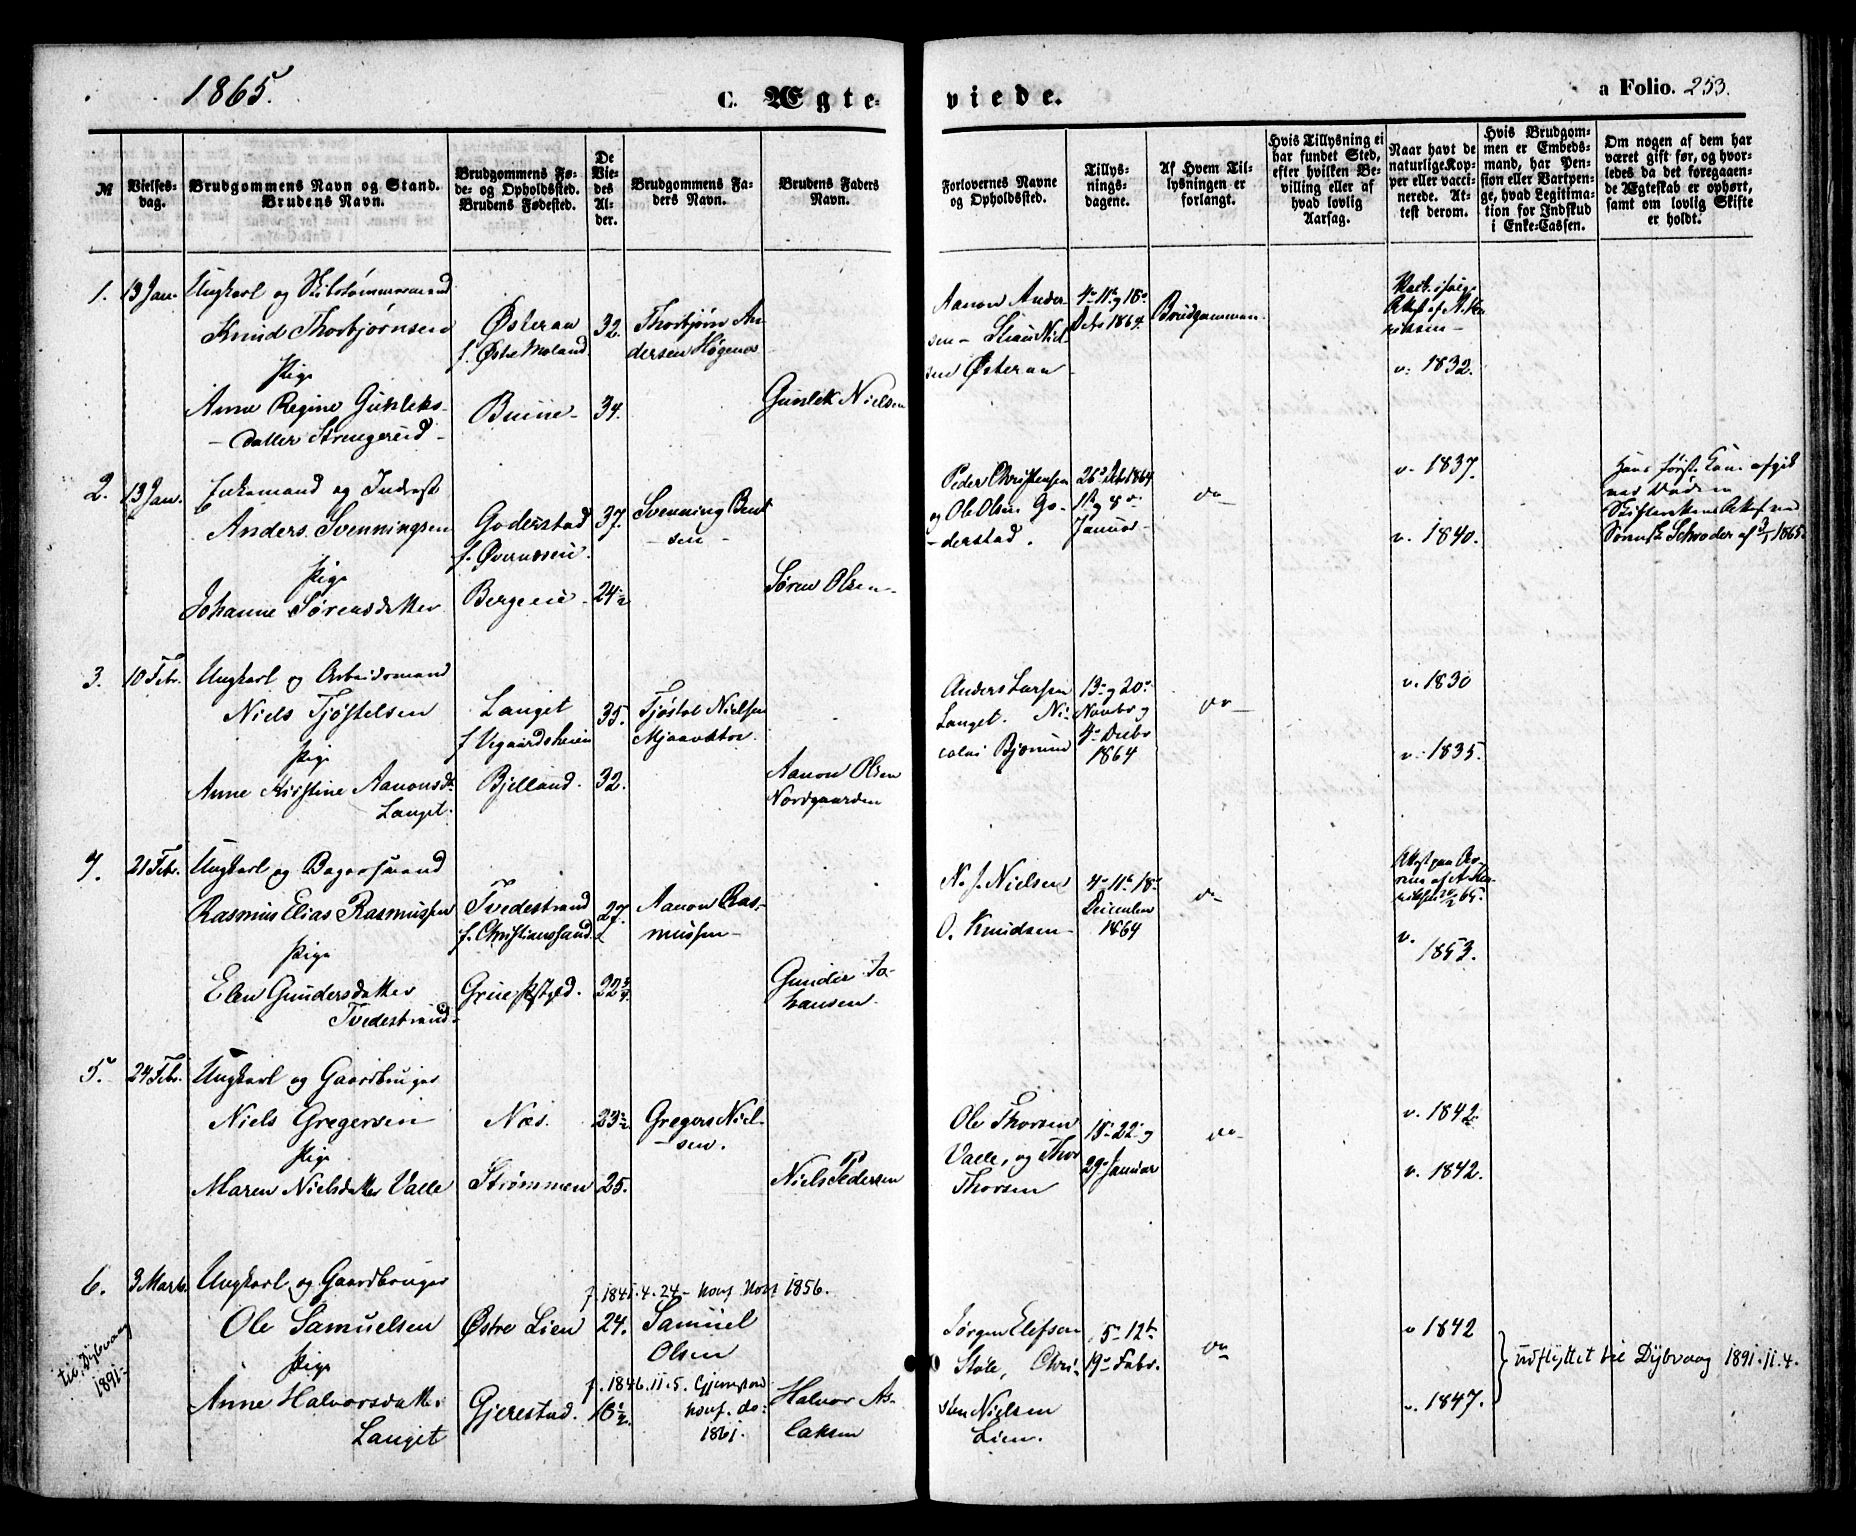 1865.
C. Ægte-
viede.
a Folio. 253.
№
Vielses-
dag.
Brudgommens Navn og Stand.
Brudens Navn.
Brudgommens Fø-
de- og Opholdssted.
Brudens Fødested.
De
Vie-
des
Al-
der.
Brudgommens Fa-
ders Navn.
Brudens Faders
Navn.
Forlovernes Navne
og Opholdssted.
Tillys-
nings-
dagene.
Af Hvem Til-
lysningen er
forlangt.
Hvis Tillysning ei
har fundet Sted,
efter hvilken Be-
villing eller af
hvad lovlig
Aarsag.
Naar havt de
naturlige Kop-
per eller vacci-
nerede. At-
test derom.
Hvis Brudgom-
men er Embeds-
mand, har Pen-
sion eller Vartpen-
ge, hvad Legitima-
tion for Indskud
i Enke-Cassen.
Om nogen af dem har
været gift før, og hvor-
ledes da det foregaaen-
de Ægteskab er ophørt,
samt om lovlig Skifte
er holdt.
1. 13 Jan. Ungkarl og Skibstømmermand
Knud Thorbjørnsen
Østeraa
f. Østre Moland.
32.
Thorbjørn An-
dersen Høgenes
Pige
Anne Regine Gunleks-
datter Strengereid
Buene
34.
Gunlek Nielsen
Aanon Ander-
sen - Niel-
sen Østeraa
4de 11te og 18de
Decbr 1864.
Brudgommen
v: 1832.
v. 1837.
2. 13 Jan. Enkemand og Inderst
Anders Svenningsen
Goderstad
f. Øvernæsene.
37.
Svenning Bent-
sen
Pige
Johanne Sørensdatter
Bergene
24½
Søren Olsen
Peder Christensen
og Ole Olsen Go-
derstad.
26de Decbr 1864
1ste og 8de
Januar
do
v. 1840.
Hans første Kone afgik
ved Døden
Schrøder af 3/1 1865.
3. 10 Febr. Ungkarl og Arbeidsmand
Niels Tjøstelsen
Langet
f. Vegaardsheien
35.
Tjøstol Nielsen
Mjaavatn
Pige
Anne Kirstine Aanonsd.
Langet.
Bjelland.
32.
Aanon Olsen
Nordgaarden
Anders Larsen
Langet. Ni-
colai
13de og 20de
Novbr og
4de Decbr
1864
do
v. 1830
v. 1835.
4. 21 Febr. Ungkarl og Bagersvend
Rasmus Elias Rasmussen
Tvedestrand
f. Christianssand
27.
Aanon Ras-
mussen
Pige
Elen Gundersdatter
Tvedestrand
22¾
Gunder Jo-
hansen
N. J. Nielsen
O. Knudsen
4de 11te 18de
December
1864
do
v.
1853.
5. 24 Febr. Ungkarl og Gaardbruger
Niels Gregersen
Næs.
23½
Gregers Niel-
sen.
Pige
Maren Nielsdatter Valle
Strømmen
25.
Niels Pedersen
Ole Thorsen
Valle, og Thor
Thorsen
15de 22de og
29de Januar
do
v. 1842.
v. 1842.
6. 3 Marts Ungkarl og Gaardbruger
f. 1841.4.24 - konf. 1856.
Ole Samuelsen
Østre Lien
24.
Samuel
Olsen
Pige
f. 1846.11.5. Gjerestad
konf. do.
1861.
Anne Halvorsdatter
Langet
Gjerestad.
18½
Halvor As-
laksen
til Dybvaag
1891
Jørgen Elefsen
Stole, Chri-
sten Nielsen
Lien.
5te 12te
19de Febr.
do
v 1842
v. 1847.
udflyttet til Dybvaag 1891.11.4.